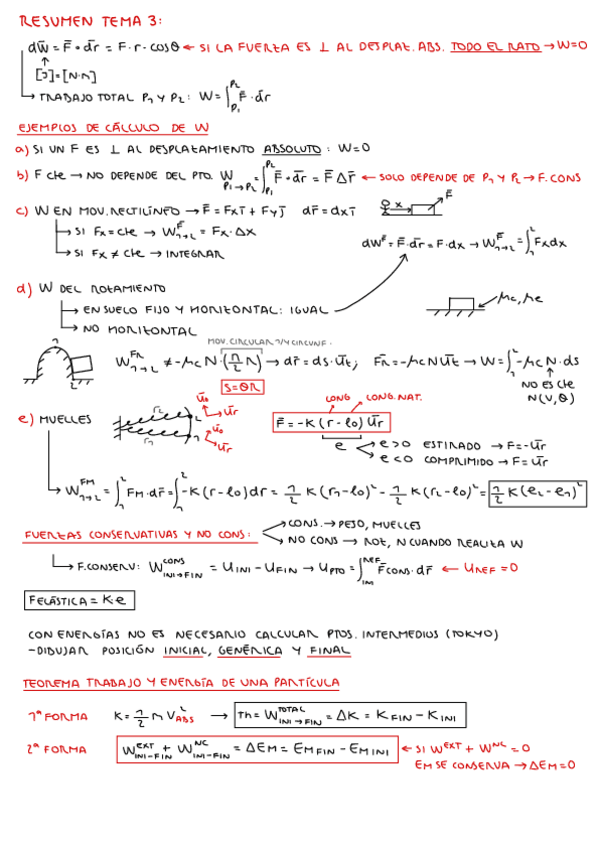 RESUMEN TEMA 3:
dW = F̄ • d̄r = F · r · cosθ ← SI LA FUERZA ES ⊥ AL DESPLAT. ABS. TODO EL RATO → W=0
[J]=[N·m]
→ TRABAJO TOTAL P1 Y P2: W = ∫_{P1}^{P2} F̄ · d̄r
EJEMPLOS DE CÁLCULO DE W
a) SI UN F ES ⊥ AL DESPLAZAMIENTO ABSOLUTO : W=0
b) F cte → NO DEPENDE DEL PTO. W_{P1→P2} = ∫_{P1}^{P2} F̄ • d̄r = F̄ Δr̄ ← SOLO DEPENDE DE P1 Y P2 → F. CONS
c) W EN MOV. RECTILÍNEO → F̄ = Fx ī + Fy j̄ d̄r = dx ī
x F̄
→ SI Fx = cte → W^F_{1→2} = Fx · Δx
dW^F = F̄ · d̄r = F · dx → W^F_{1→2} = ∫_1^2 Fx dx
→ SI Fx ≠ cte → INTEGRAR
d) W DEL ROZAMIENTO
→ EN SUELO FIJO Y HORIZONTAL: IGUAL
μc, μe
→ NO HORIZONTAL
MOV. CIRCULAR 1/4 CIRCUNF.
1 2
W^{FR}_{1→2} ≠ -μc N · (π/2 R) → d̄r = ds · ūt ; F̄R = -μc N ūt → W = ∫_1^2 -μc N · ds
S=θR
NO ES cte
N(V,θ)
e) MUELLES
r2 r1 2 1 ūθ ūr ūθ ūr
LONG LONG. NAT.
F̄ = -K (r - l0) ūr
e
e>0 ESTIRADO → F=-ūr
e<0 COMPRIMIDO → F=ūr
→ W^{FM}_{1→2} = ∫_1^2 FM · d̄r = ∫_1^2 -K (r - l0) dr = 1/2 K (r1 - l0)² - 1/2 K (r2 - l0)² = 1/2 K (e2 - e1)²
FUERZAS CONSERVATIVAS Y NO CONS:
→ CONS. → PESO, MUELLES
→ NO CONS → ROZ, N CUANDO REALIZA W
→ F. CONSERV: W^{CONS}_{INI→FIN} = U INI - U FIN → U PTO = ∫_{INI}^{REF} F̄CONS · d̄r ← U REF = 0
F ELÁSTICA = K·e
CON ENERGÍAS NO ES NECESARIO CALCULAR PTOS. INTERMEDIOS (TOKYO)
-DIBUJAR POSICIÓN INICIAL, GENÉRICA Y FINAL
TEOREMA TRABAJO Y ENERGÍA DE UNA PARTÍCULA
1ª FORMA K = 1/2 m V²ABS → Th = W^{TOTAL}_{INI→FIN} = ΔK = K FIN - K INI
2ª FORMA W^{EXT}_{INI-FIN} + W^{NC}_{INI-FIN} = ΔEM = EM FIN - EM INI ← SI W^{EXT} + W^{NC} = 0
EM SE CONSERVA → ΔEM=0